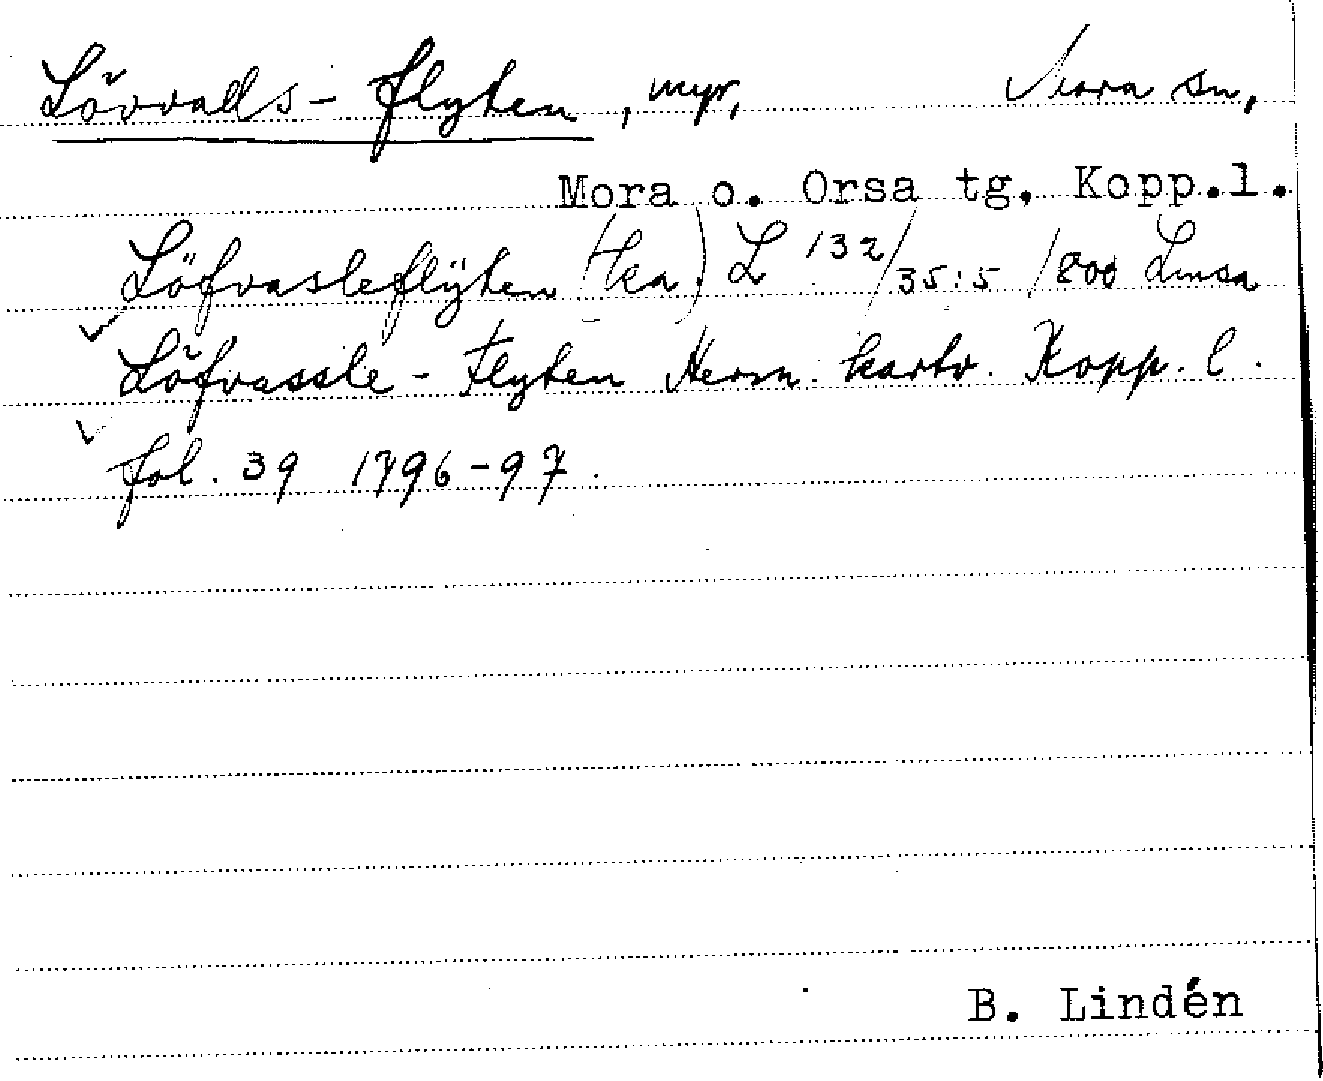 Lövvalls-flyten, myr, Mora sn,
Mora o. Orsa tg. Kopp.l.
Löfvasleflÿten (ka) L 132/35:5 1800 Lmsa
Löfvassle-Flyten Herm. kartv. Kopp. l.
fol. 39 1796-97.
B. Lindén